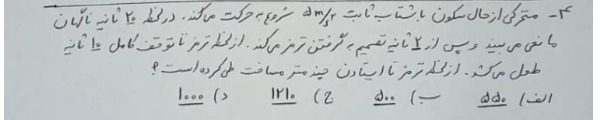 ۴- متحرکی از حال سکون با شتاب ثابت ۵m/s۲ شروع به حرکت می‌کند. در لحظه ۲۰ ثانیه ناگهان
مانعی می بیند و پس از ۲ ثانیه تصمیم به گرفتن ترمز می‌کند. از لحظه ترمز تا توقف کامل ۱۰ ثانیه
طول می‌کشد. از لحظه ترمز تا ایستادن چند متر مسافت طی کرده است؟
الف) ۵۵۰ ب) ۵۰۰ ج) ۱۲۱۰ د) ۱۰۰۰